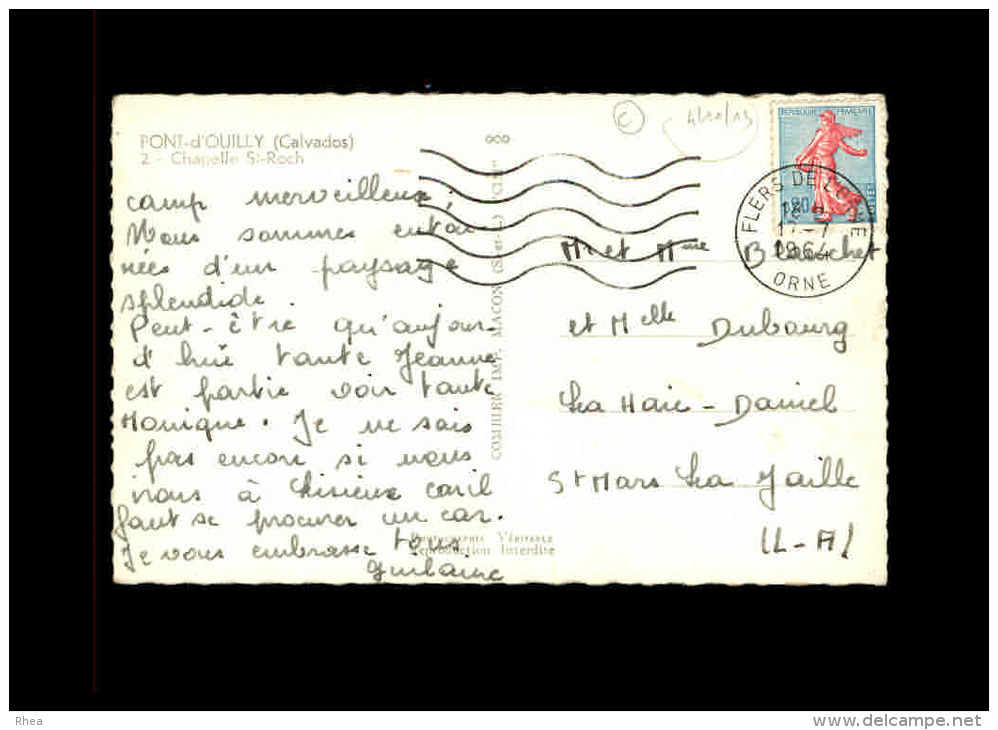 PONT-d'OUILLY (Calvados)
2 - Chapelle St-Roch
camp merveilleux ;
Nous sommes entou
rées d'un paysage
splendide.
Peut-être qu'aujour-
d'hui tante Jeanne
est partie voir tante
Monique. Je ne sais
pas encore si nous
irons à Lisieux caril
faut se procurer un car.
Je vous embrasse tous
Guilaine
COMBIER IMP. MACON (S.-et-L.) "CIM"
PHOTOGRAPHIE VÉRITABLE
Reproduction Interdite
C
4/10/13
REPUBLIQUE FRANÇAISE
FLERS DE L'ORNE
18 H
17-7
1964
ORNE
Mr et Mme Blanchet
et Melle Dubourg
La Haie-Daniel
St Mars La Jaille
(L-A)
Rhea
www.delcampe.net